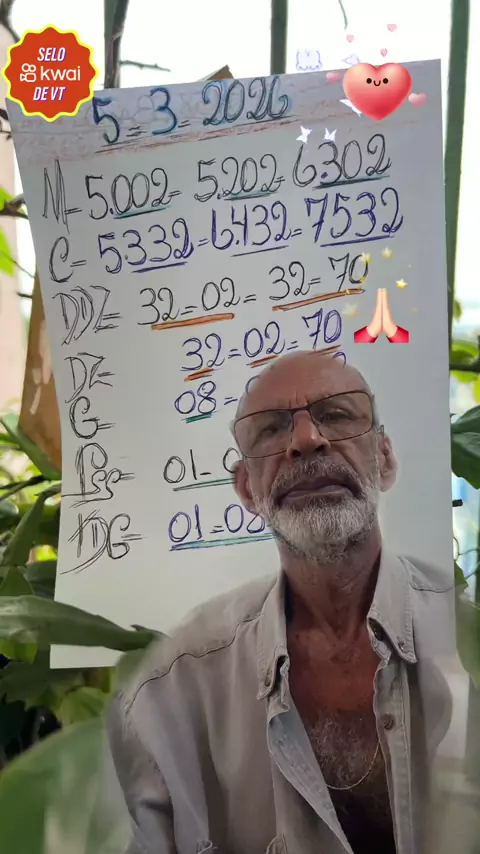 SELO
kwai
DE VT
5=3=2026
M=5.002=5.202=6.302
C=5332=6.432=7532
DDZ=32=02=32=70
DZ=32=02=70
G=08=
01-0
TDG=01=08